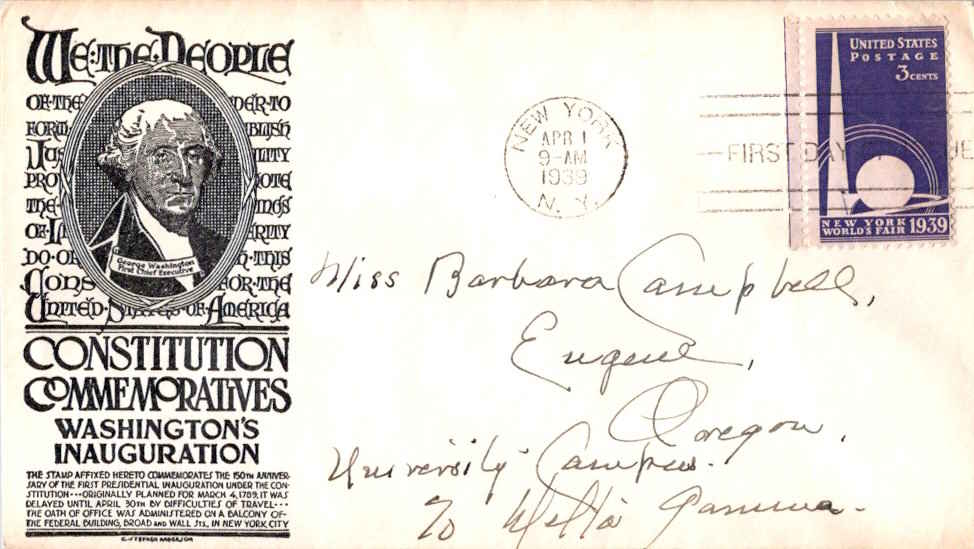 WE·THE·PEOPLE
OF·THE DER·TO
FORM BLISH
JUS LITY
PRO OTE
THE· INGS
OF·L RITY
DO·O H·THIS
CONS FOR·THE
UNITED·STATES·OF·AMERICA
George Washington
First Chief Executive
CONSTITUTION
COMMEMORATIVES
WASHINGTON'S
INAUGURATION
THE STAMP AFFIXED HERETO COMMEMORATES THE 150TH ANNIVER-
SARY OF THE FIRST PRESIDENTIAL INAUGURATION UNDER THE CON-
STITUTION···ORIGINALLY PLANNED FOR MARCH 4, 1789, IT WAS
DELAYED UNTIL APRIL 30TH BY DIFFICULTIES OF TRAVEL···
THE OATH OF OFFICE WAS ADMINISTERED ON A BALCONY OF·
THE FEDERAL BUILDING, BROAD AND WALL STS., IN NEW YORK CITY
C·STEPHEN ANDERSON
NEW YORK
APR 1
9-AM
1939
N. Y.
FIRST DAY
UNITED STATES
POSTAGE
3 CENTS
NEW YORK
WORLD'S FAIR 1939
Miss Barbara Campbell,
Eugene,
Oregon.
University Campus.
% Delta Gamma.